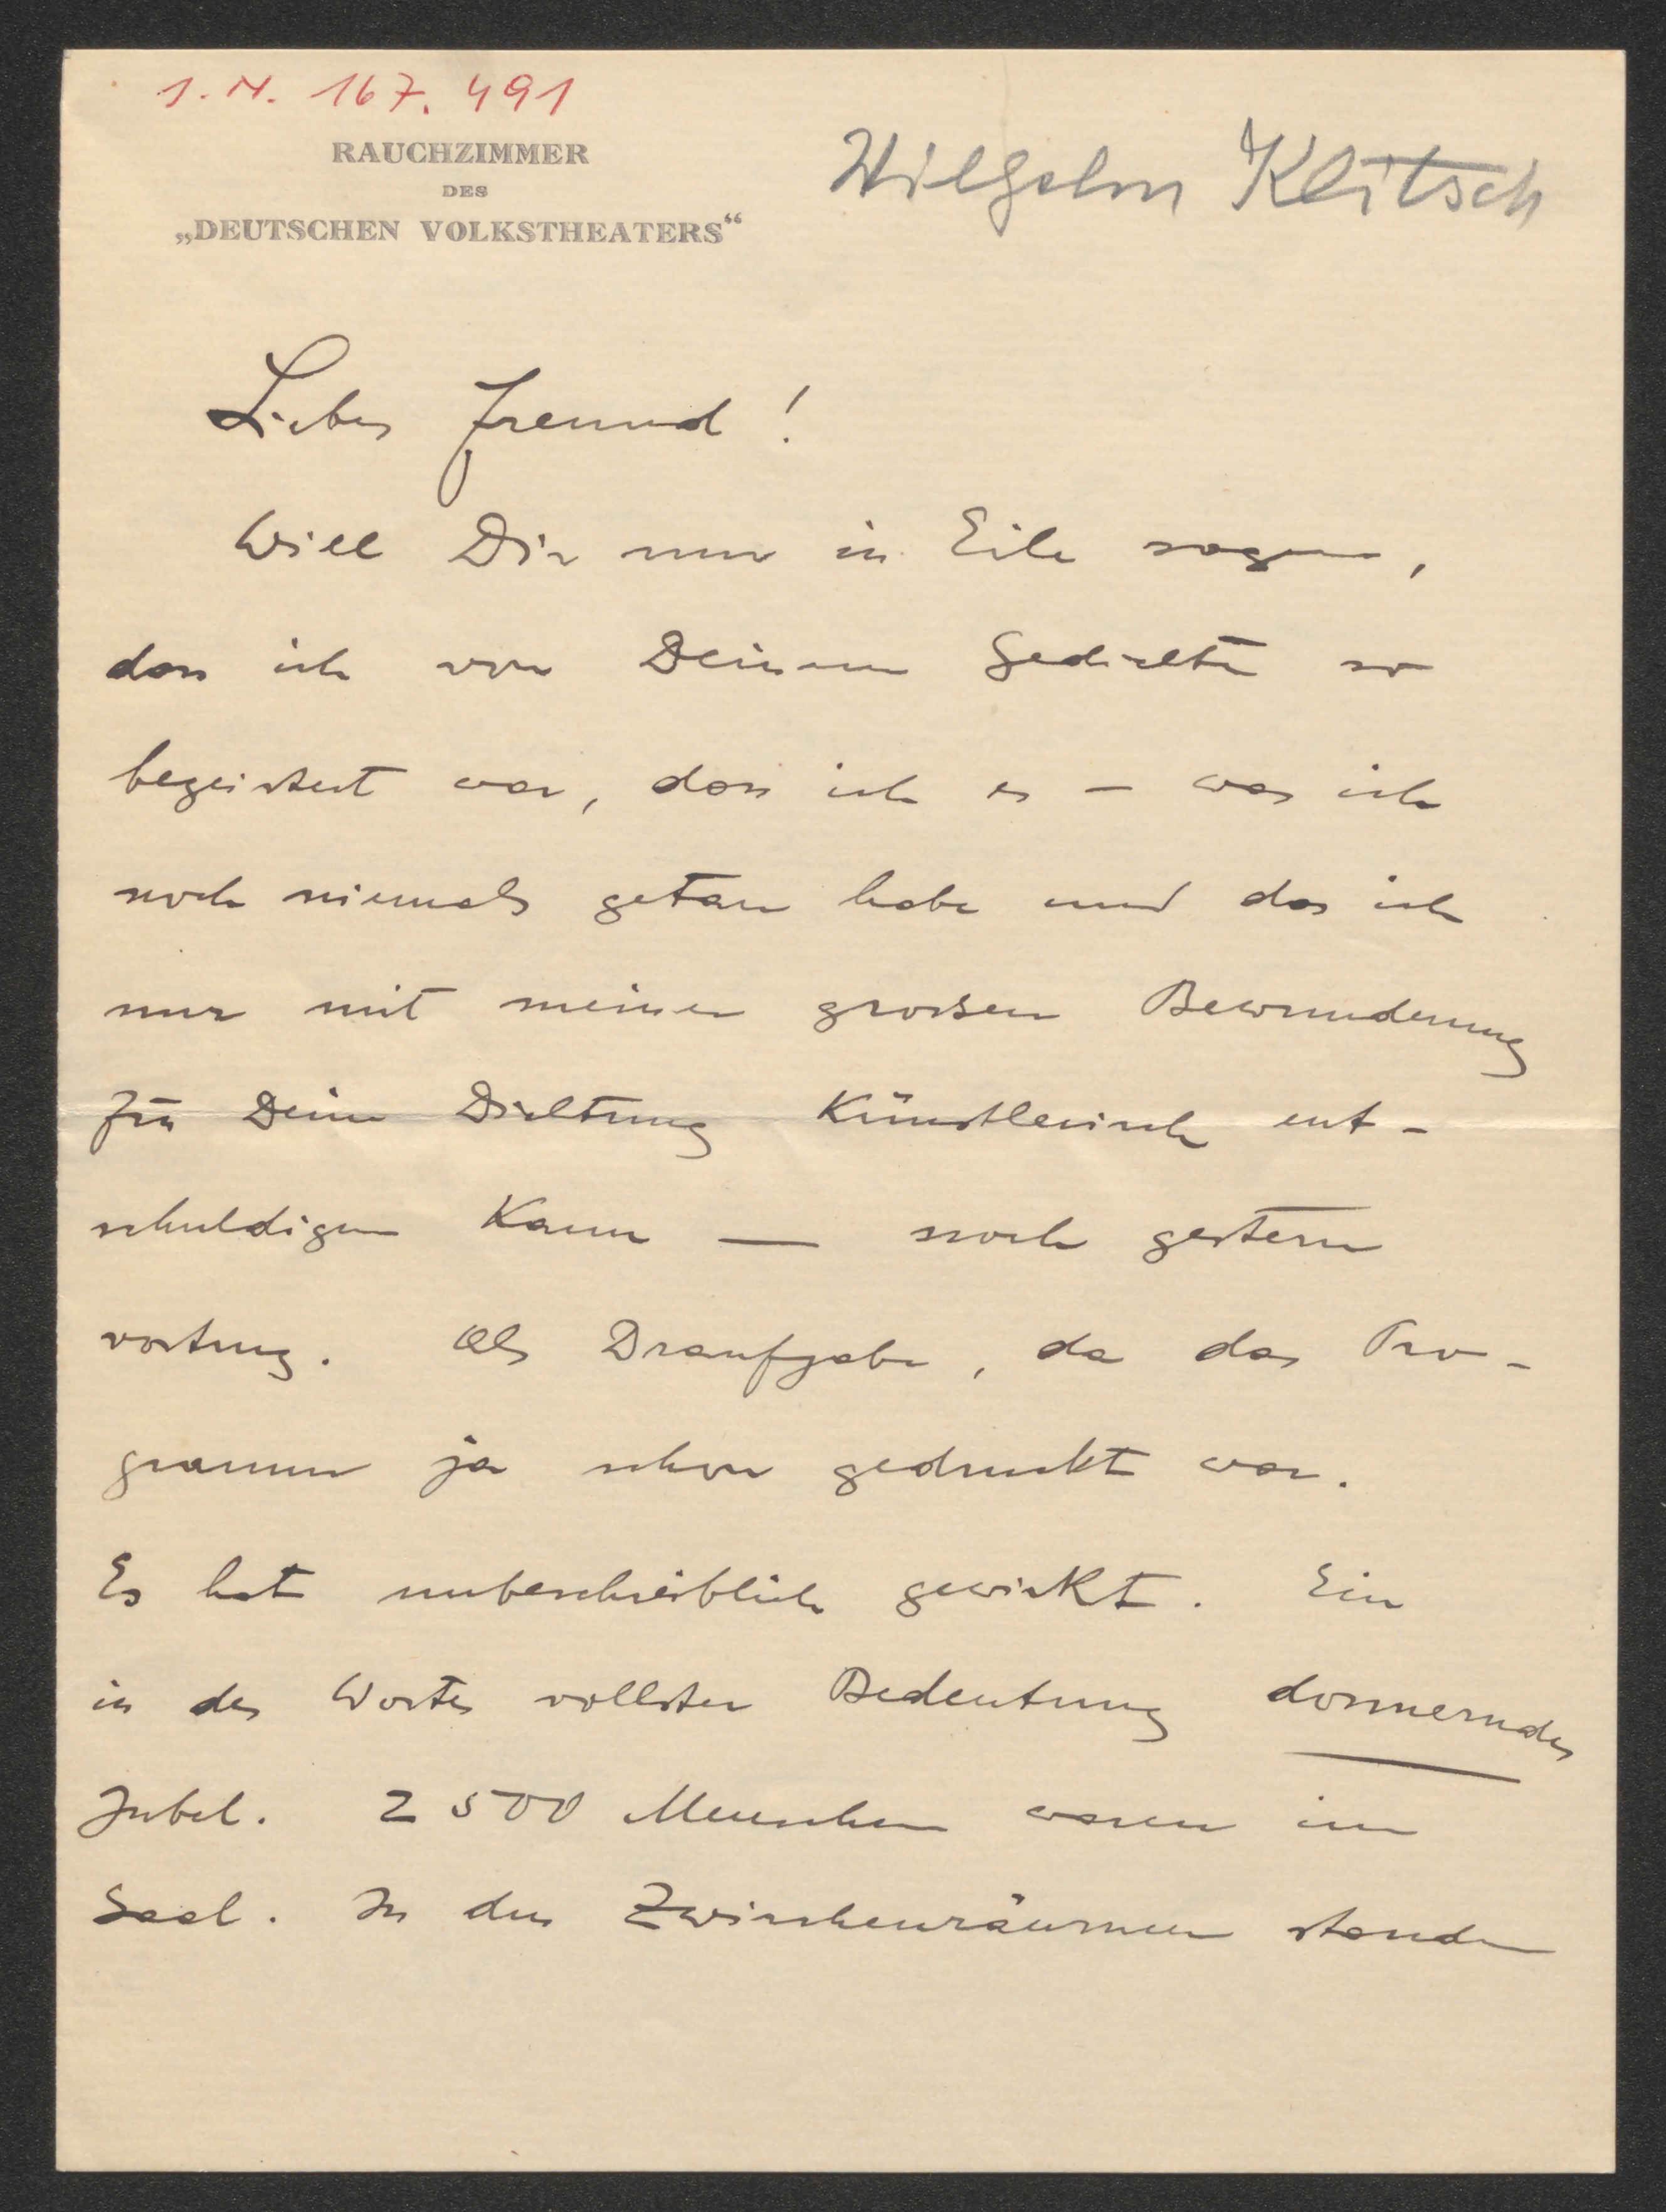 I. N. 167.491
RAUCHZIMMER
DES
„DEUTSCHEN VOLKSTHEATERS“
Wilhelm Klitsch
Lieber Freund!
Will Dir nur in Eile sagen,
dass ich von Deinem Gedichte so
begeistert war, dass ich es – was ich
noch niemals getan habe und das ich
nur mit meiner grossen Bewunderung
für Deine Dichtung künstlerisch ent-
schuldigen kann — noch gestern
vortrug. Als Draufgabe, da das Pro-
gramm ja schon gedruckt war.
Es hat unbeschreiblich gewirkt. Ein
in des Wortes vollster Bedeutung donnernder
Jubel. 2500 Menschen waren im
Saal. In den Zwischenräumen standen